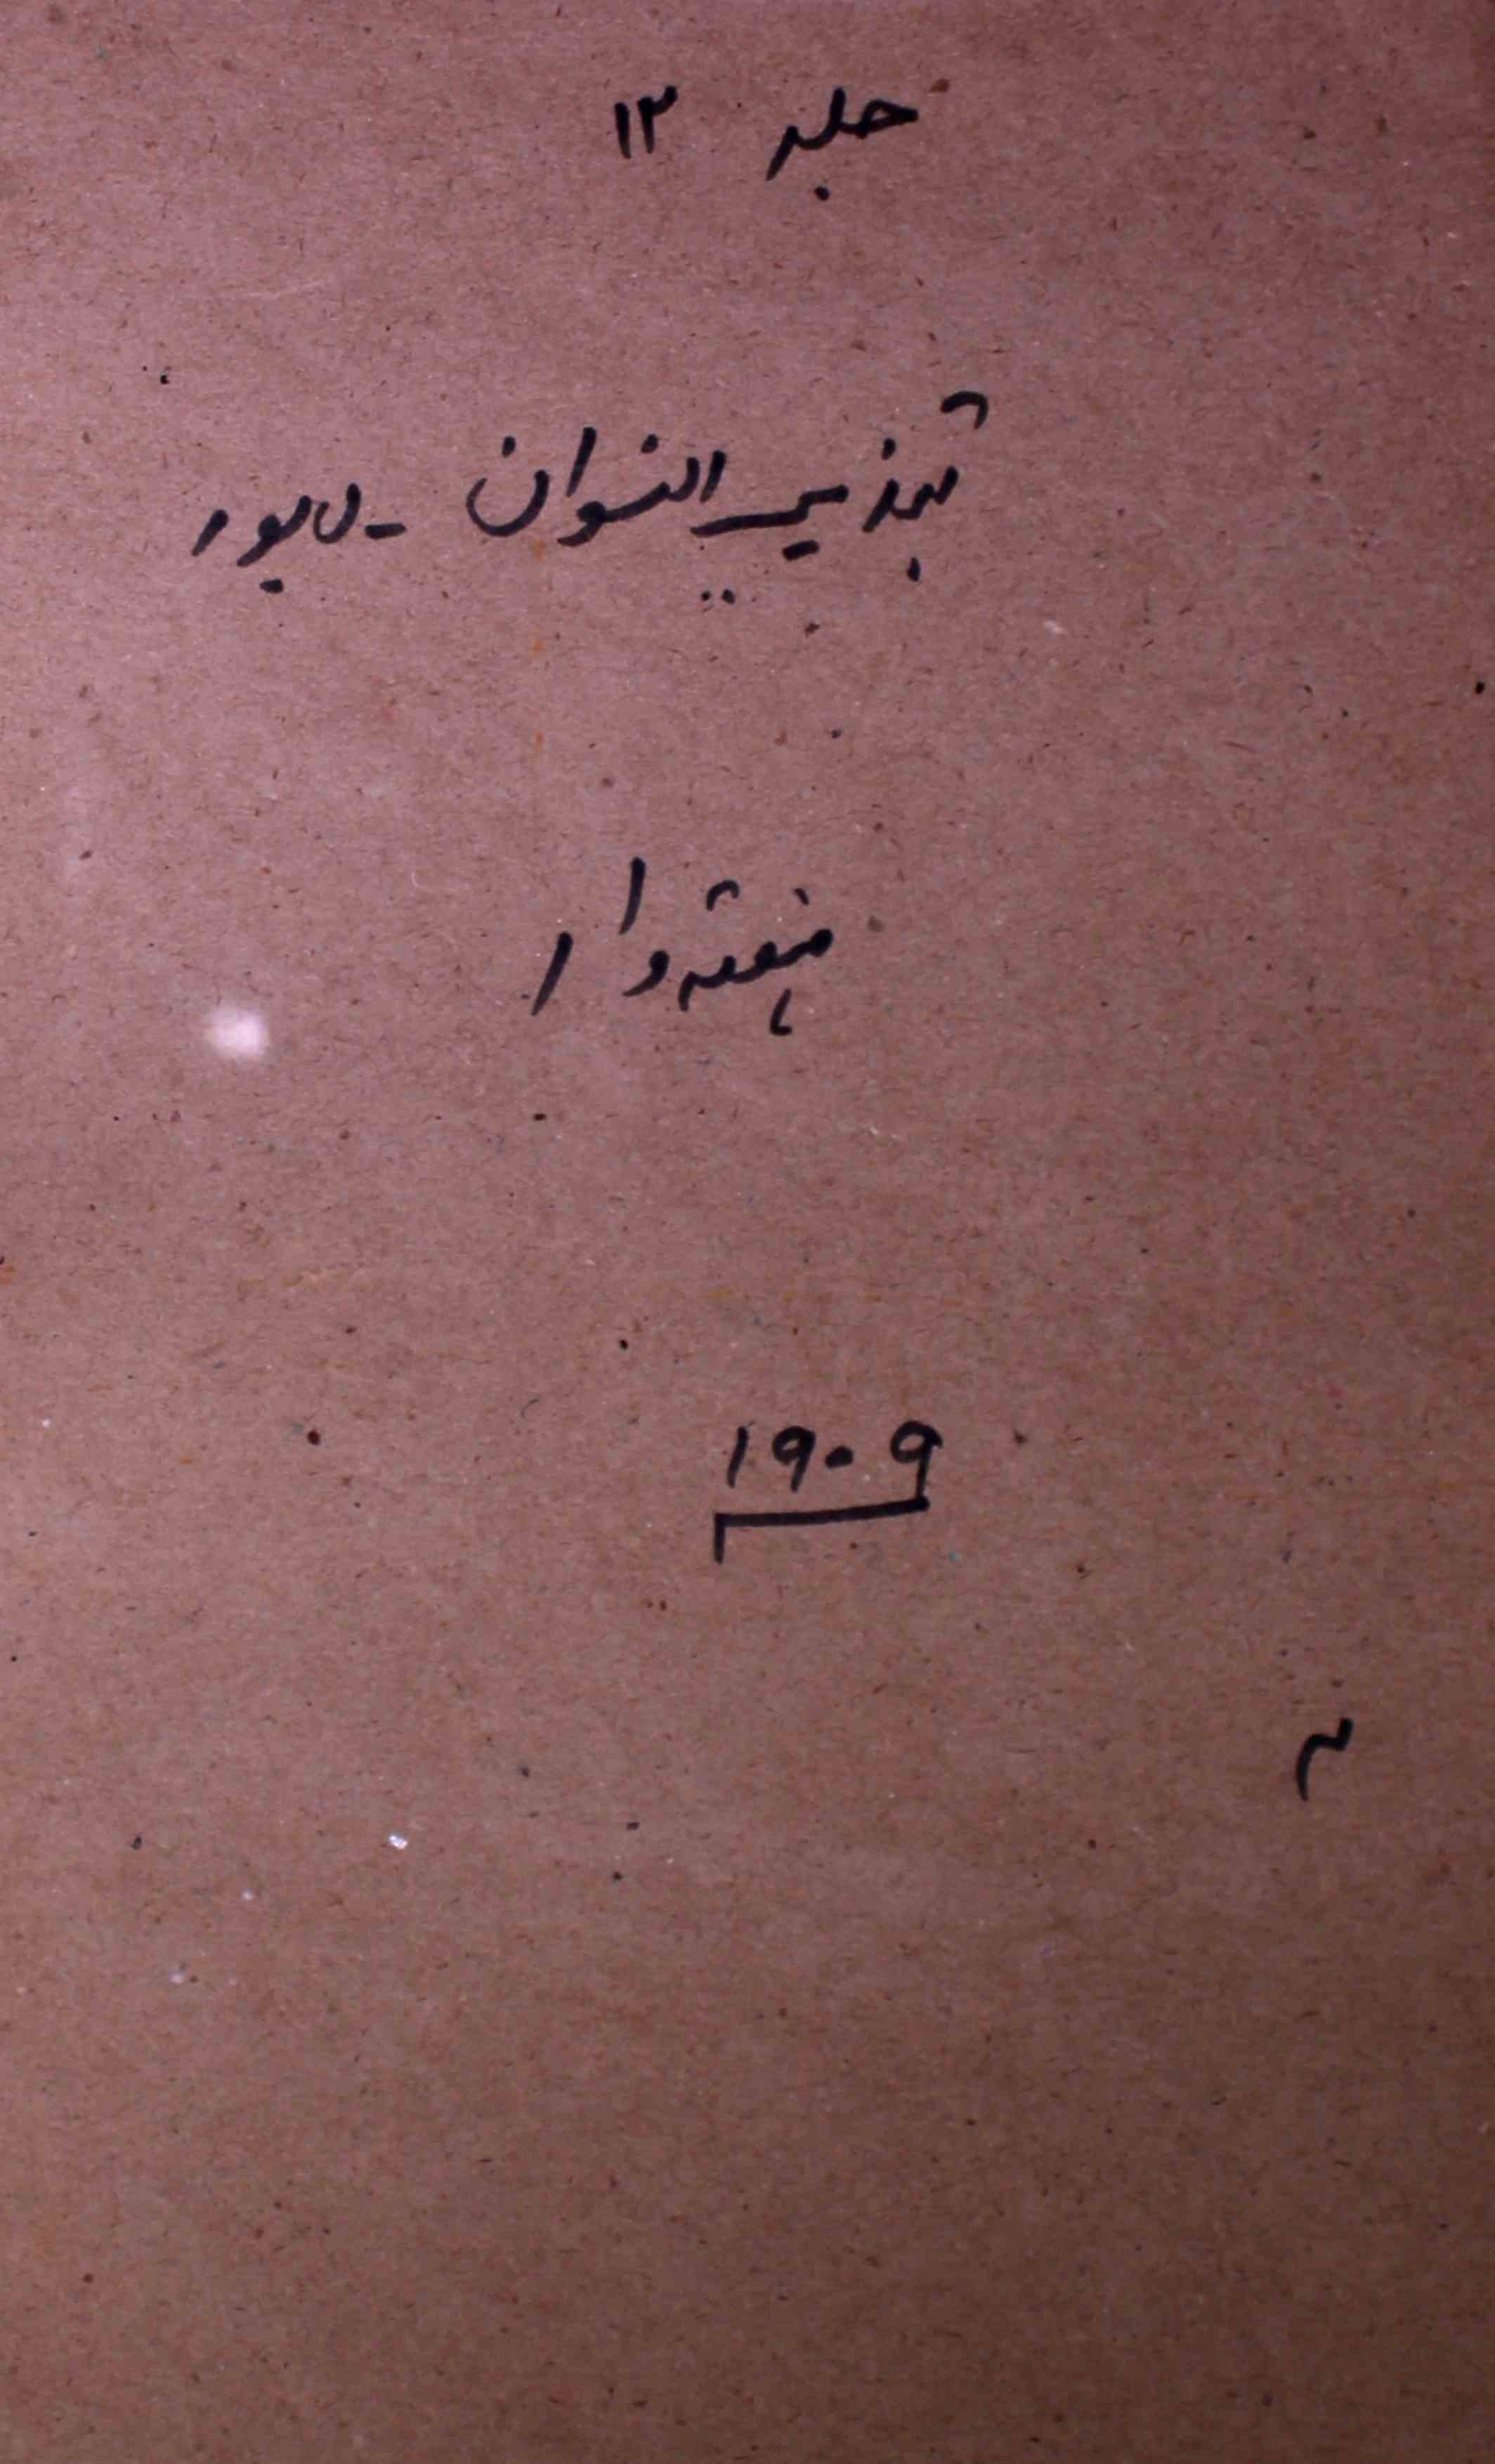 جلد ۱۲
تہذیب النسواں - لاہور
ہفتہ وار
۱۹۰۹